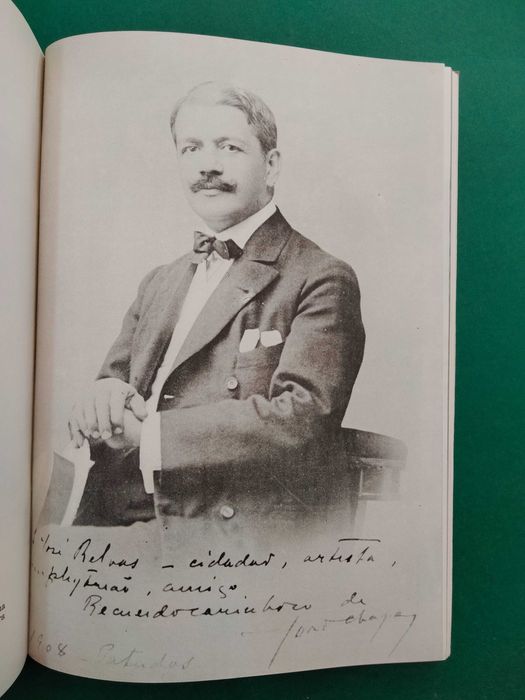 José Relvas – cidadão, artista,
amphytrião, amigo.
Recuerdo carinhoso de
João Chagas
1908 – Patudos